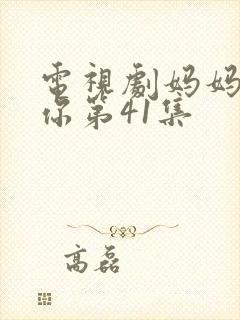 電視劇妈妈
你第41集
高磊